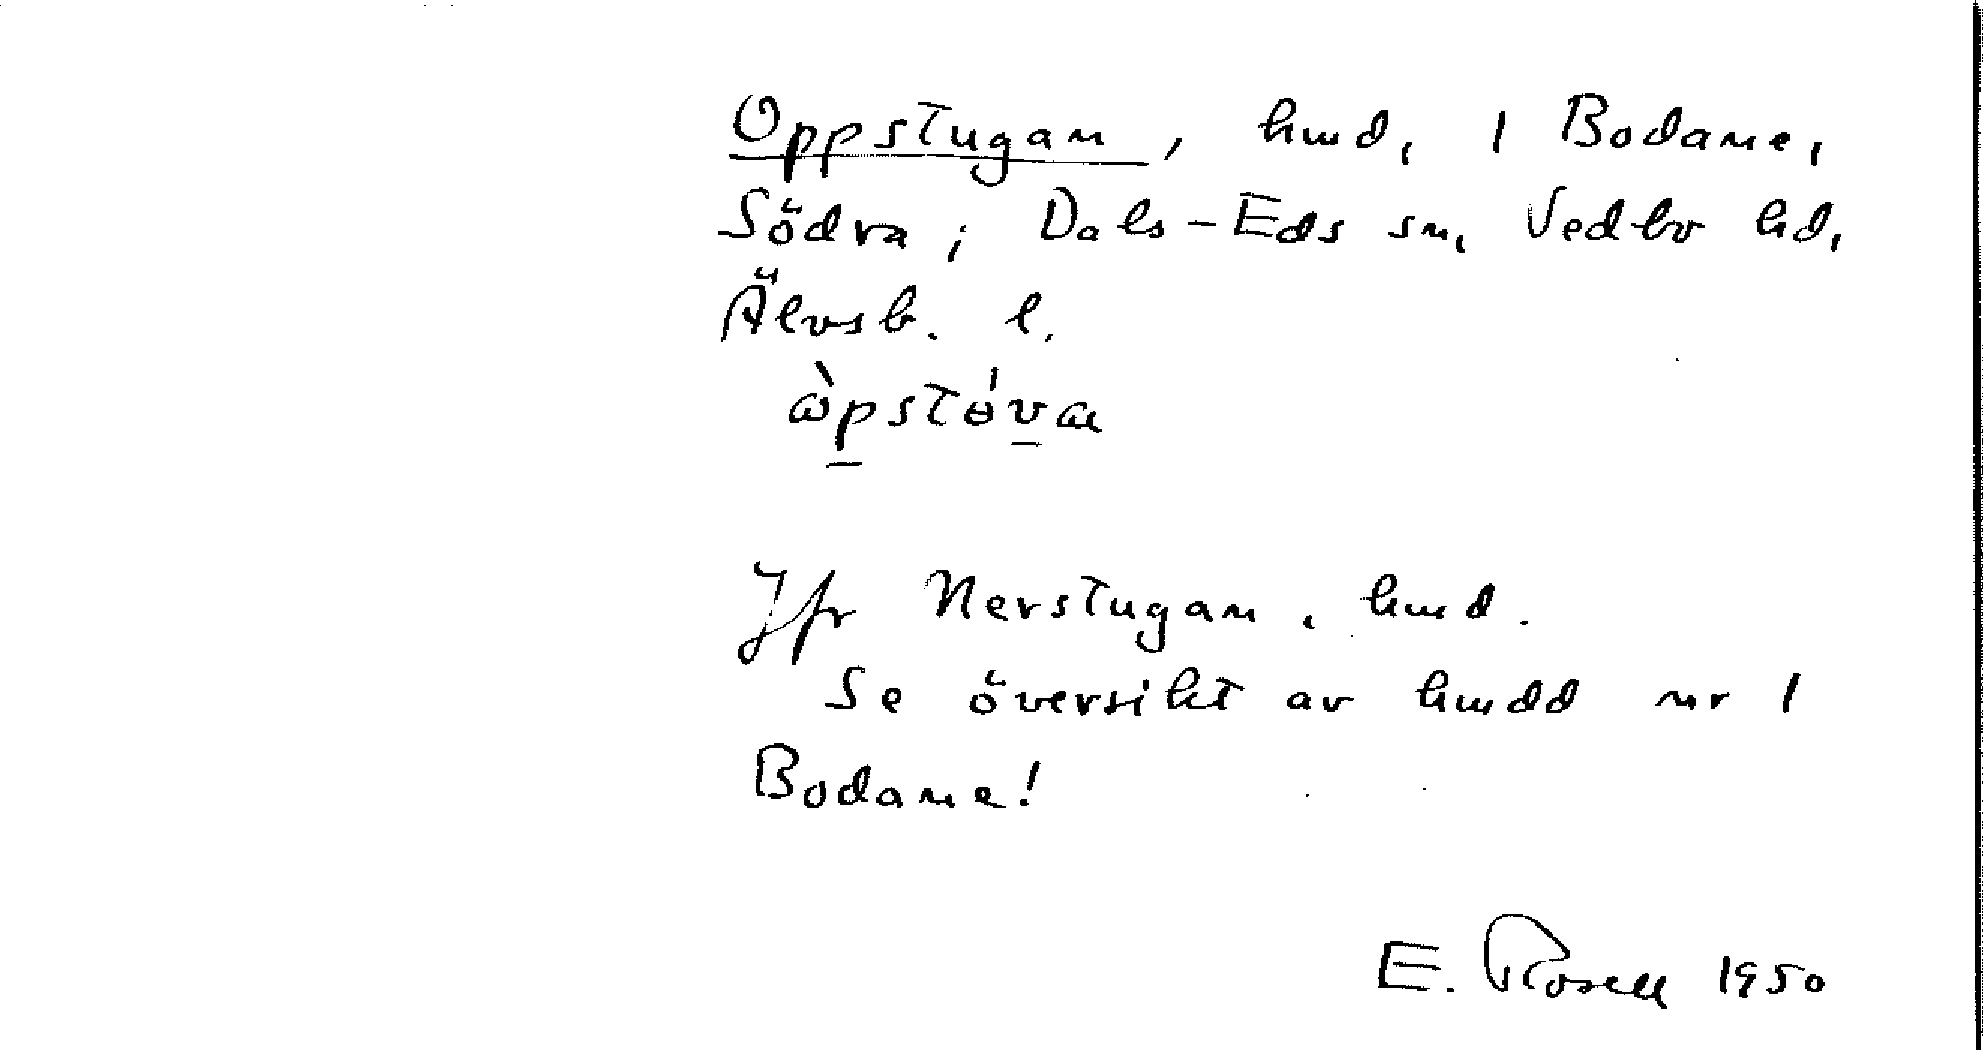 Oppstugan, hmd, 1 Bodane,
Södra; Dals-Eds sn, Vedbo hd,
Älvsb. l.
Jfr Nerstugan, hmd.
Se översikt av hmdd nr 1
Bodane!
E. Rosell 1950